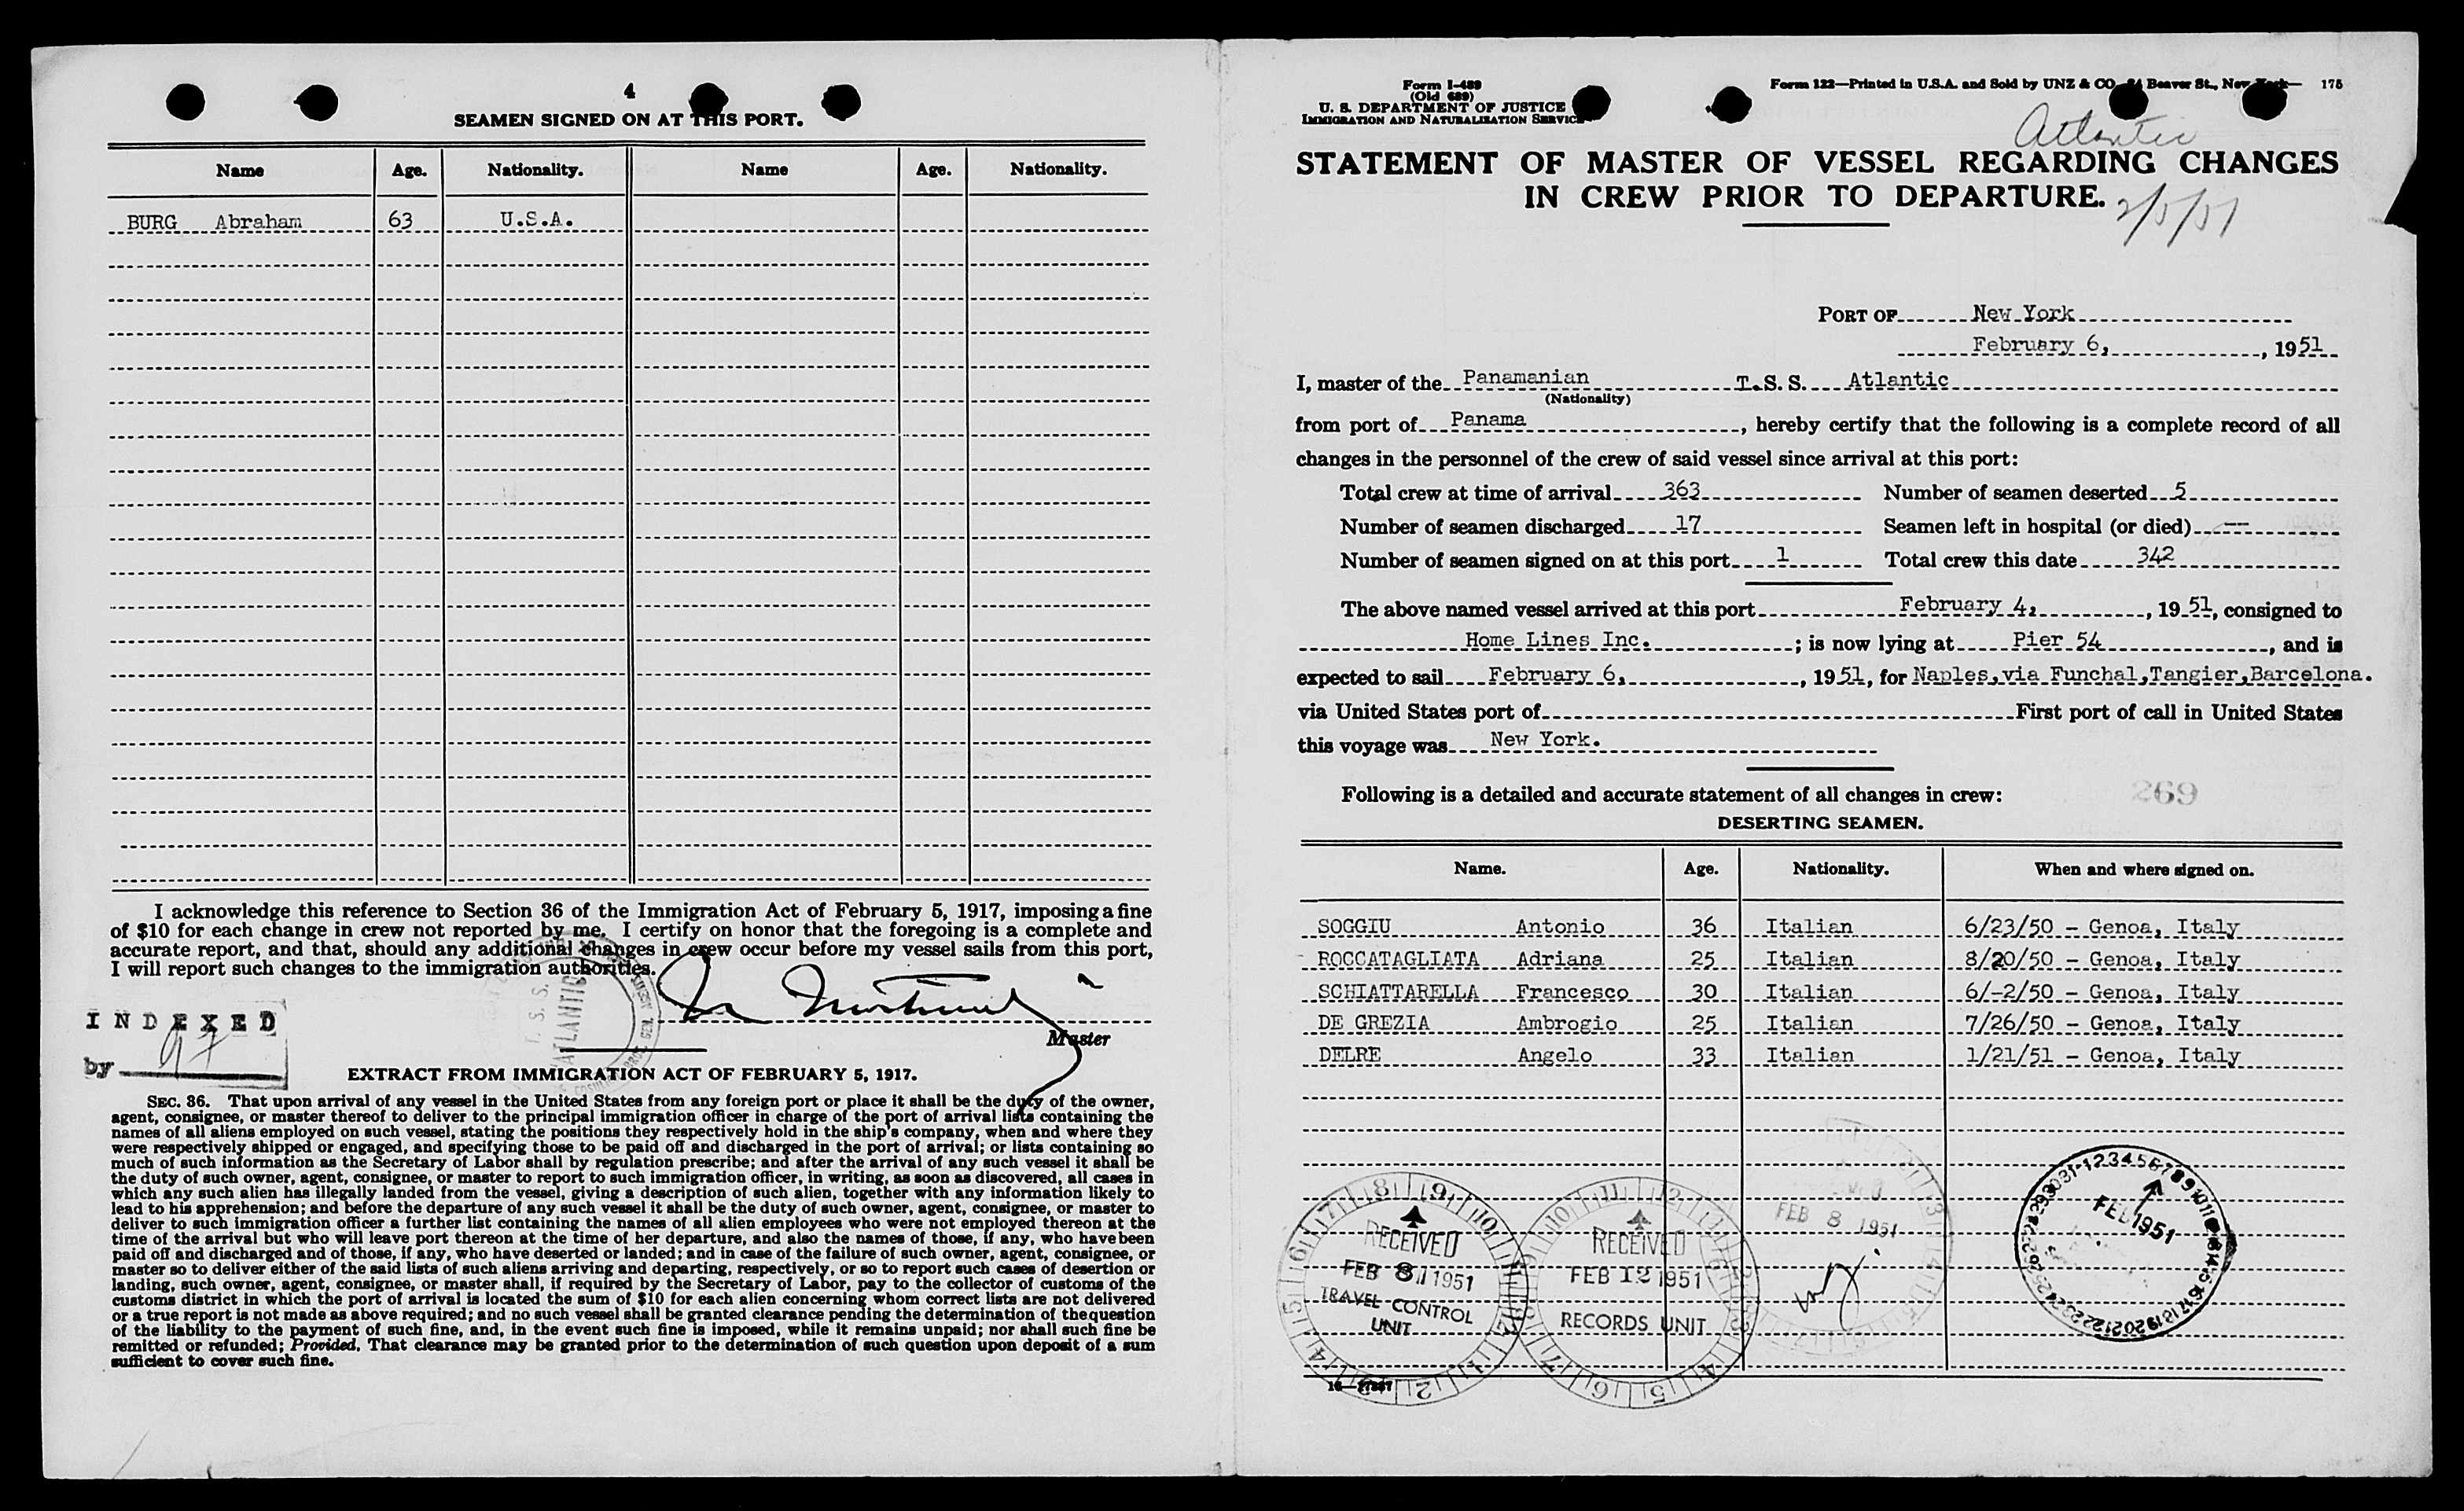 4
SEAMEN SIGNED ON AT THIS PORT.
Name Age. Nationality. Name Age. Nationality.
BURG Abraham 63 U.S.A.
I acknowledge this reference to Section 36 of the Immigration Act of February 5, 1917, imposing a fine
of $10 for each change in crew not reported by me. I certify on honor that the foregoing is a complete and
accurate report, and that, should any additional changes in crew occur before my vessel sails from this port,
I will report such changes to the immigration authorities.
T. S. S.
ATLANTIC
Master
INDEXED
by
EXTRACT FROM IMMIGRATION ACT OF FEBRUARY 5, 1917.
SEC. 36. That upon arrival of any vessel in the United States from any foreign port or place it shall be the duty of the owner,
agent, consignee, or master thereof to deliver to the principal immigration officer in charge of the port of arrival lists containing the
names of all aliens employed on such vessel, stating the positions they respectively hold in the ship's company, when and where they
were respectively shipped or engaged, and specifying those to be paid off and discharged in the port of arrival; or lists containing so
much of such information as the Secretary of Labor shall by regulation prescribe; and after the arrival of any such vessel it shall be
the duty of such owner, agent, consignee, or master to report to such immigration officer, in writing, as soon as discovered, all cases in
which any such alien has illegally landed from the vessel, giving a description of such alien, together with any information likely to
lead to his apprehension; and before the departure of any such vessel it shall be the duty of such owner, agent, consignee, or master to
deliver to such immigration officer a further list containing the names of all alien employees who were not employed thereon at the
time of the arrival but who will leave port thereon at the time of her departure, and also the names of those, if any, who have been
paid off and discharged and of those, if any, who have deserted or landed; and in case of the failure of such owner, agent, consignee, or
master so to deliver either of the said lists of such aliens arriving and departing, respectively, or so to report such cases of desertion or
landing, such owner, agent, consignee, or master shall, if required by the Secretary of Labor, pay to the collector of customs of the
customs district in which the port of arrival is located the sum of $10 for each alien concerning whom correct lists are not delivered
or a true report is not made as above required; and no such vessel shall be granted clearance pending the determination of the question
of the liability to the payment of such fine, and, in the event such fine is imposed, while it remains unpaid; nor shall such fine be
remitted or refunded; Provided, That clearance may be granted prior to the determination of such question upon deposit of a sum
sufficient to cover such fine.
Form I-489
(Old 689)
U. S. DEPARTMENT OF JUSTICE
IMMIGRATION AND NATURALIZATION SERVICE
Form 122—Printed in U.S.A. and Sold by UNZ & CO. 24 Beaver St., New York— 175
Atlantic
STATEMENT OF MASTER OF VESSEL REGARDING CHANGES
IN CREW PRIOR TO DEPARTURE.
2/5/51
PORT OF New York
February 6, , 1951
I, master of the Panamanian T.S.S. Atlantic
(Nationality)
from port of Panama , hereby certify that the following is a complete record of all
changes in the personnel of the crew of said vessel since arrival at this port:
Total crew at time of arrival 363 Number of seamen deserted 5
Number of seamen discharged 17 Seamen left in hospital (or died) --
Number of seamen signed on at this port 1 Total crew this date 342
The above named vessel arrived at this port February 4, , 1951, consigned to
Home Lines Inc. ; is now lying at Pier 54 , and is
expected to sail February 6, , 1951, for Naples,via Funchal,Tangier,Barcelona.
via United States port of First port of call in United States
this voyage was New York.
Following is a detailed and accurate statement of all changes in crew:
269
DESERTING SEAMEN.
Name. Age. Nationality. When and where signed on.
SOGGIU Antonio 36 Italian 6/23/50 - Genoa, Italy
ROCCATAGLIATA Adriana 25 Italian 8/20/50 - Genoa, Italy
SCHIATTARELLA Francesco 30 Italian 6/-2/50 - Genoa, Italy
DE GREZIA Ambrogio 25 Italian 7/26/50 - Genoa, Italy
DELRE Angelo 33 Italian 1/21/51 - Genoa, Italy
RECEIVED
FEB 8 1951
TRAVEL CONTROL
UNIT
RECEIVED
FEB 12 1951
RECORDS UNIT
FEB 8 1951
FEB 1951